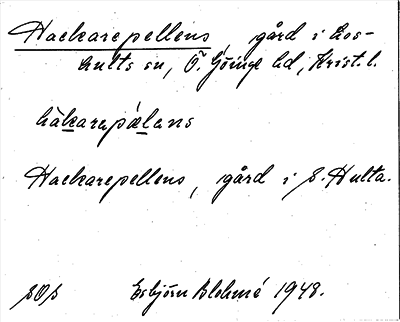 Hackarepellens, gård i Los-
hults sn, Ö. Göinge hd, Krist. l.
håkarepälens
Hackarepellens, gård i S. Hulta.
SOS Esbjörn Blohmé 1948.